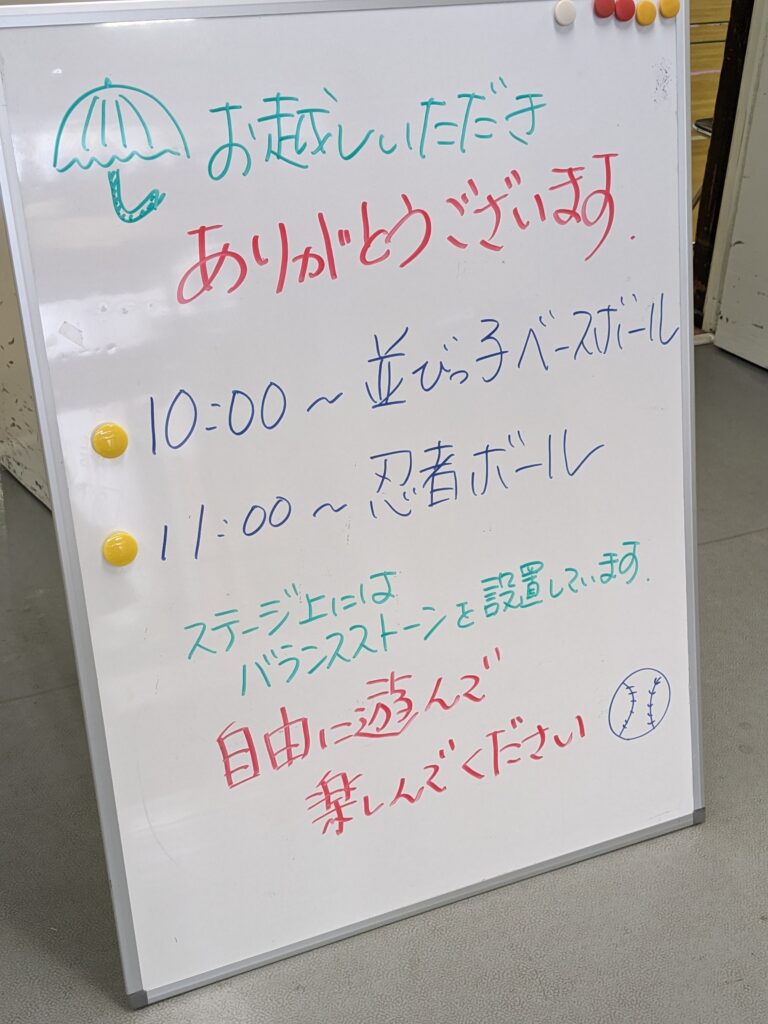 お越しいただき
ありがとうございます.
10:00～並びっ子ベースボール
11:00～忍者ボール
ステージ上には
バランスストーンを設置しています.
自由に遊んで
楽しんでください